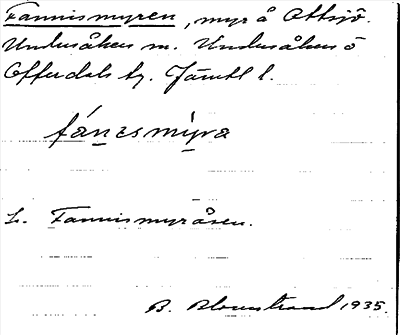 Fannismyren, myr å Ottsjö.
Undersåkers sn. Undersåkers o
Offerdals tg. Jämtl l.
fánesmyra
L. Fannismyråsen.
B. Blomstrand 1935.